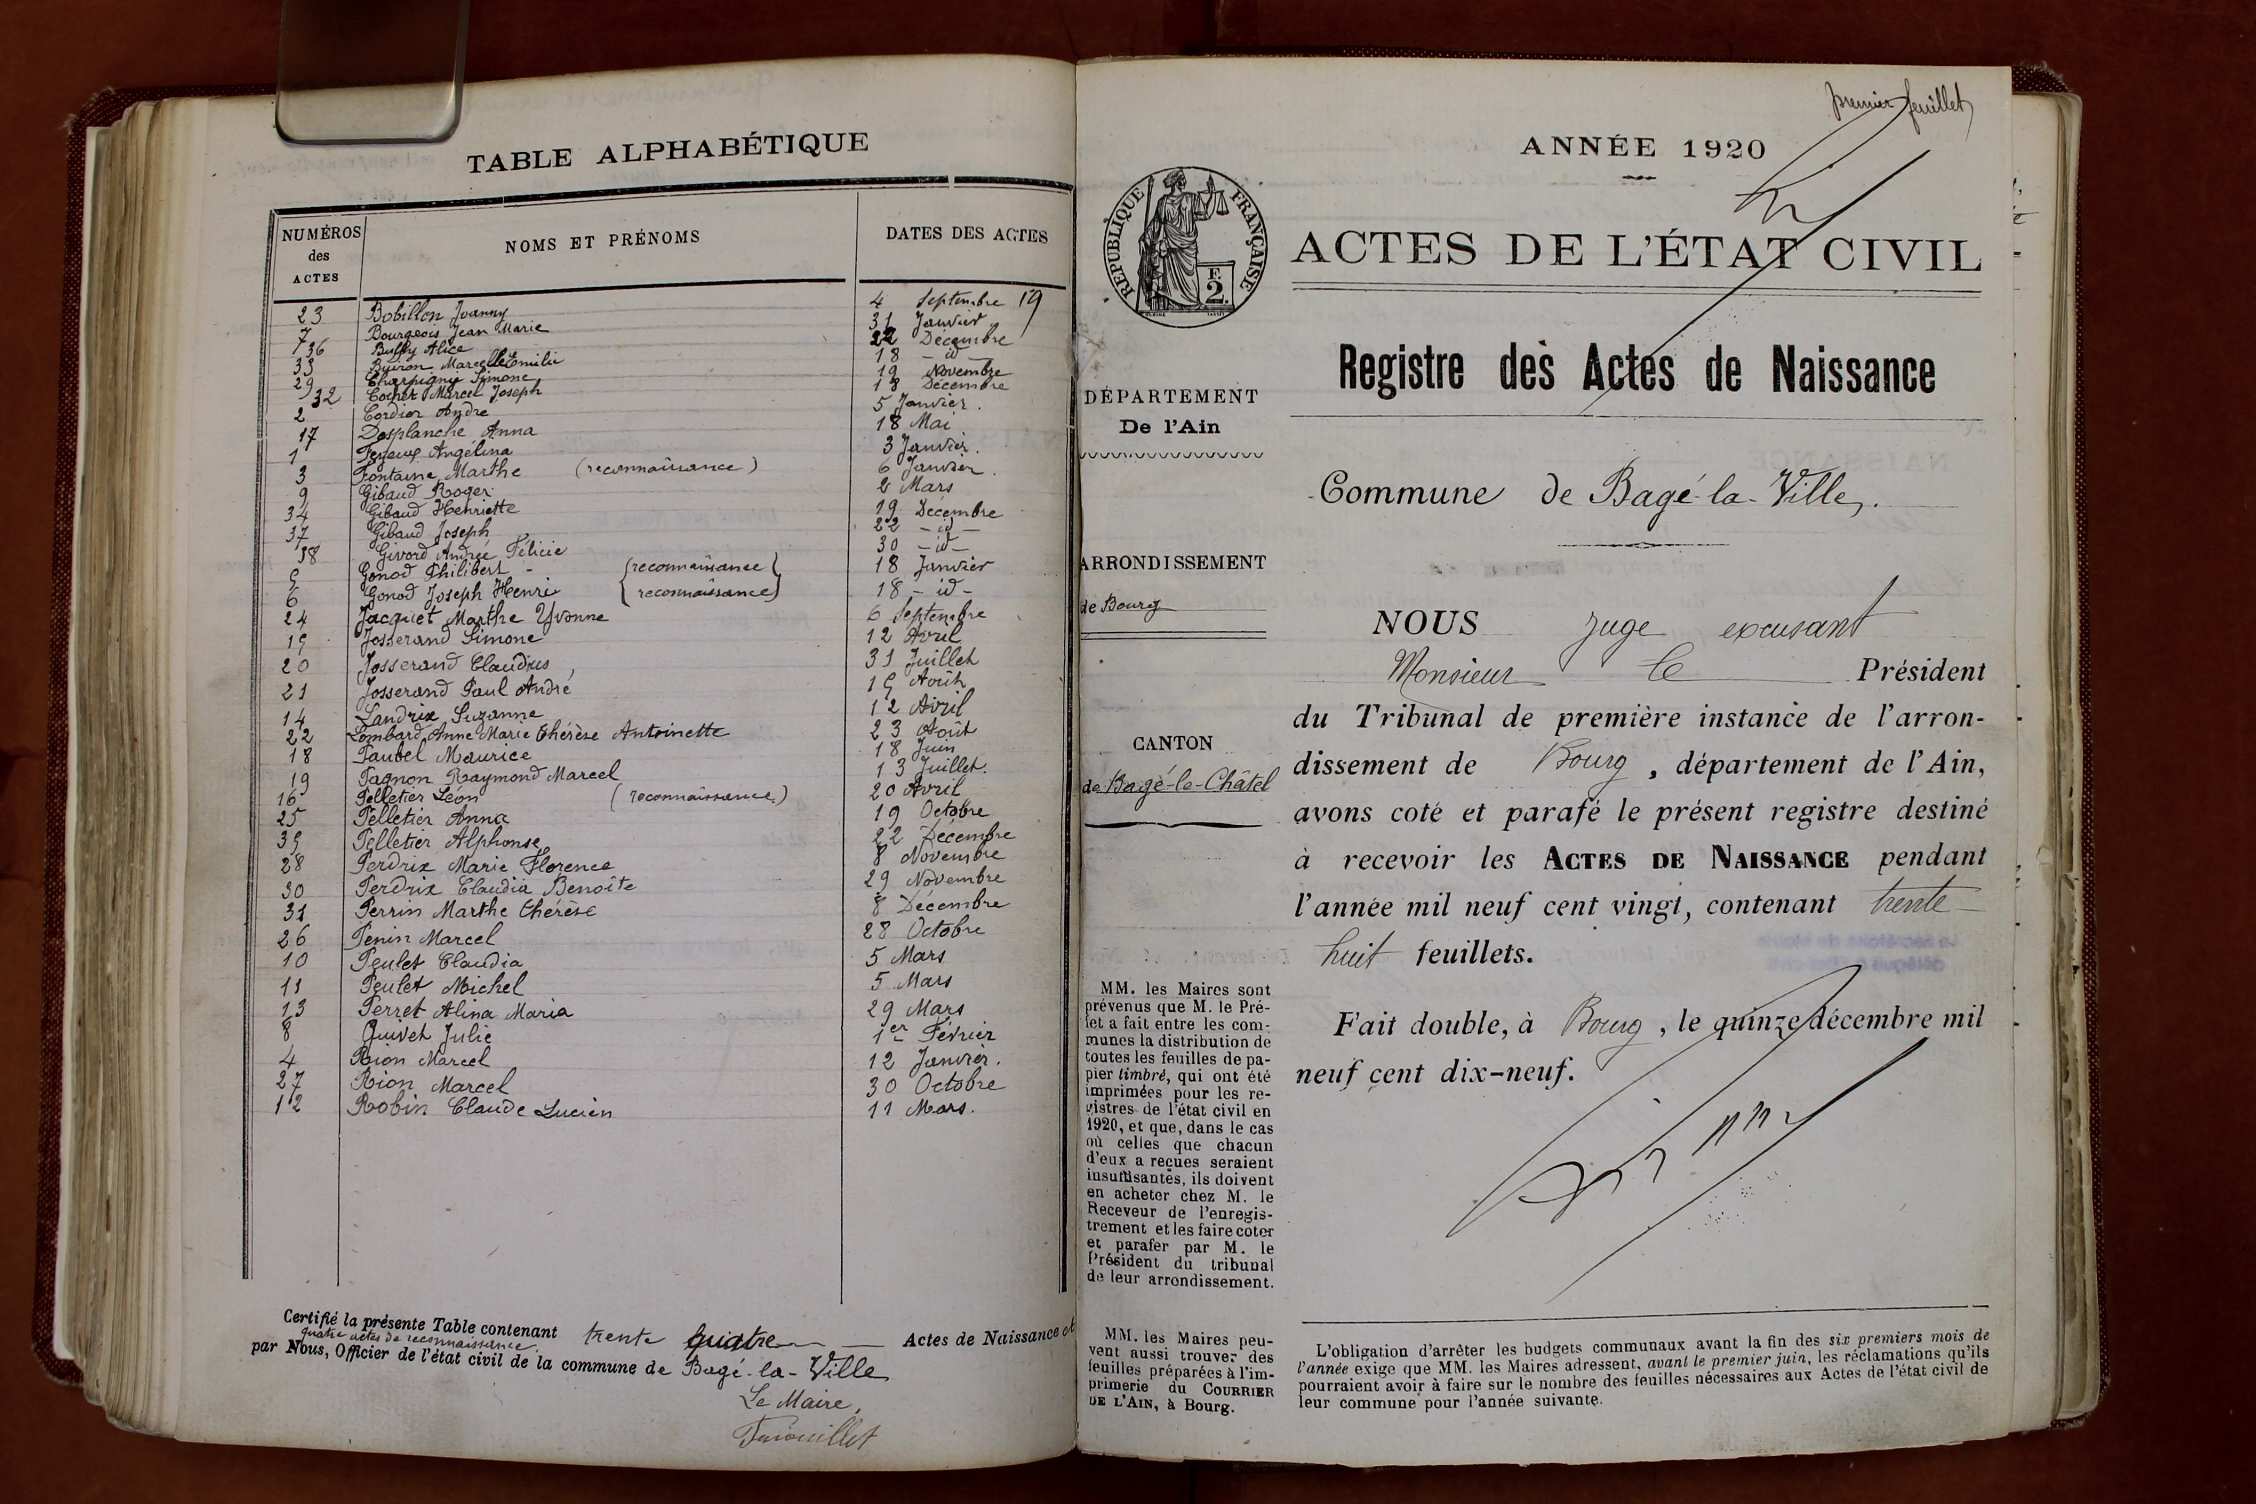 TABLE ALPHABÉTIQUE
NUMÉROS des ACTES
NOMS ET PRÉNOMS
DATES DES ACTES
23 Bobillon Joanny 4 Septembre 19
7 Bourgeois Jean Marie 31 Janvier
36 Buffy Alice 22 Décembre
33 Buiron Marcelle Emilie 18 - id -
29 Charpigny Simone 19 Novembre
32 Cochet Marcel Joseph 13 Décembre
2 Cordier Andre 5 Janvier.
17 Desplanche Anna 18 Mai
1 Angélina 3 Janvier.
3 Fontaine Marthe (reconnaissance) 6 Janvier.
9 Gibaud Roger 2 Mars
34 Gibaud Henriette 19 Decembre
37 Gibaud Joseph 22 - id -
38 Givord Andrée Félicie 30 - id -
5 Gonod Philibert - (reconnaissance) 18 Janvier
6 Gonod Joseph Henri (reconnaissance) 18 - id -
24 Jacquet Marthe Yvonne 6 Septembre
15 Josserand Simone 12 Avril
20 Josserand Claudius 31 Juillet
21 Josserand Paul André 15 Août
14 Landrix Suzanne 12 Avril
22 Lombard Anne Marie Thérèse Antoinette 23 Août
18 Paubel Maurice 18 Juin
19 Pagnon Raymond Marcel 13 Juillet.
16 Pelletier Léon (reconnaissance) 20 Avril
25 Pelletier Anna 19 Octobre
35 Pelletier Alphonse 22 Décembre
28 Perdrix Marie Florence 8 Novembre
30 Perdrix Claudia Benoîte 29 Novembre
31 Perrin Marthe Thérèse 8 Décembre
26 Penin Marcel 28 Octobre
10 Peulet Claudia 5 Mars
11 Peulet Michel 5 Mars
13 Perret Alina Maria 29 Mars
8 Quivet Julie 1er Février
4 Rion Marcel 12 Janvier.
27 Rion Marcel 30 Octobre
12 Robin Claude Lucien 11 Mars.
Certifié la présente Table contenant trente quatre Actes de Naissance et
quatre actes de reconnaissance.
par Nous, Officier de l'état civil de la commune de Bagé-la-Ville
Le Maire,
premier feuillet
ANNÉE 1920
RÉPUBLIQUE FRANÇAISE
F.
2.
ACTES DE L'ÉTAT CIVIL
Registre des Actes de Naissance
DÉPARTEMENT
De l'Ain
ARRONDISSEMENT
de Bourg
CANTON
de Bagé-le-Châtel
MM. les Maires sont
prévenus que M. le Pré-
fet a fait entre les com-
munes la distribution de
toutes les feuilles de pa-
pier timbré, qui ont été
imprimées pour les re-
gistres de l'état civil en
1920, et que, dans le cas
où celles que chacun
d'eux a reçues seraient
insuffisantes, ils doivent
en acheter chez M. le
Receveur de l'enregis-
trement et les faire coter
et parafer par M. le
Président du tribunal
de leur arrondissement.
MM. les Maires peu-
vent aussi trouver des
feuilles préparées à l'im-
primerie du COURRIER
DE L'AIN, à Bourg.
Commune de Bagé-la-Ville.
NOUS juge excusant
Monsieur le Président
du Tribunal de première instance de l'arron-
dissement de Bourg, département de l'Ain,
avons coté et parafé le présent registre destiné
à recevoir les ACTES DE NAISSANCE pendant
l'année mil neuf cent vingt, contenant trente
huit feuillets.
Fait double, à Bourg, le quinze décembre mil
neuf cent dix-neuf.
L'obligation d'arrêter les budgets communaux avant la fin des six premiers mois de
l'année exige que MM. les Maires adressent, avant le premier juin, les réclamations qu'ils
pourraient avoir à faire sur le nombre des feuilles nécessaires aux Actes de l'état civil de
leur commune pour l'année suivante.